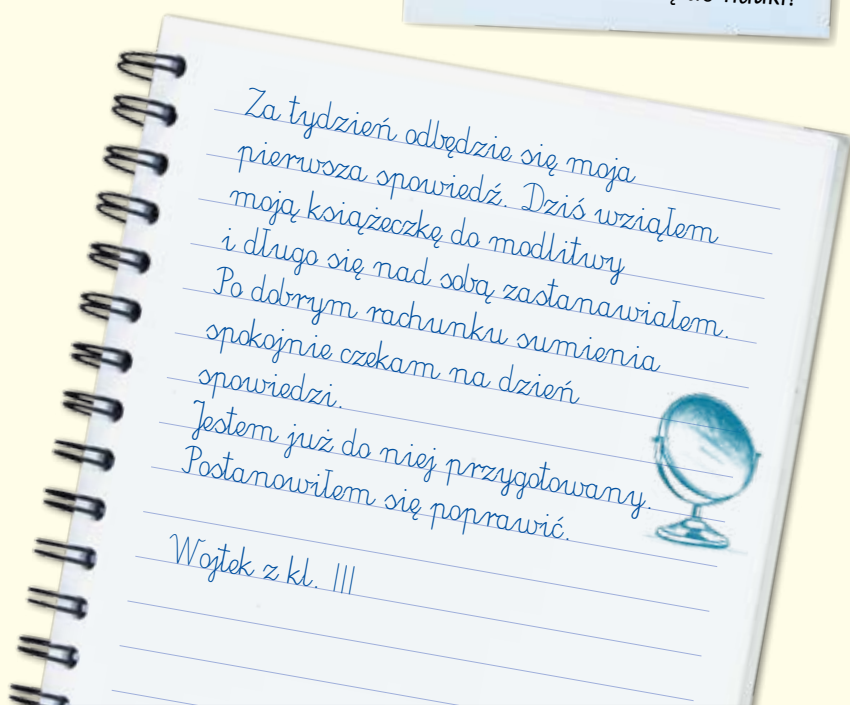 Za tydzień odbędzie się moja
pierwsza spowiedź. Dziś wziąłem
moją książeczkę do modlitwy
i długo się nad sobą zastanawiałem.
Po dobrym rachunku sumienia
spokojnie czekam na dzień
spowiedzi.
Jestem już do niej przygotowany.
Postanowiłem się poprawić.
Wojtek z kl. III